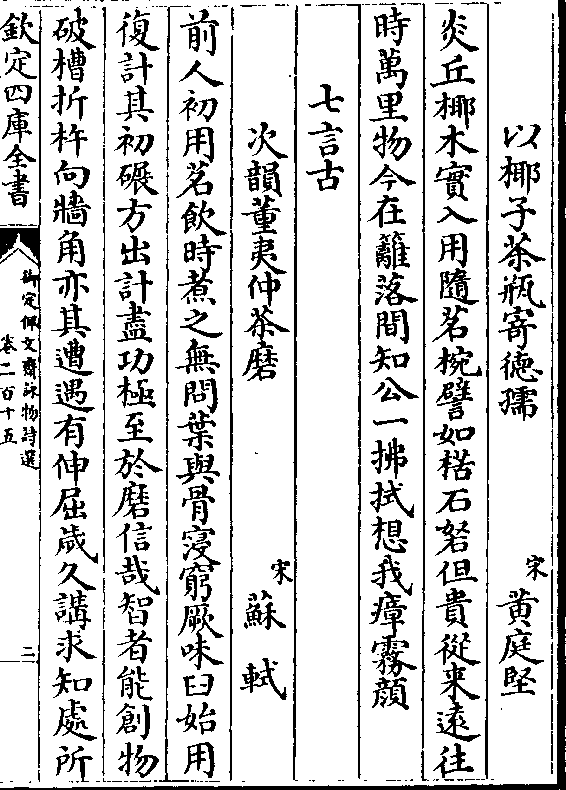 以椰子茶瓶寄德孺
宋 黄庭堅
炎丘椰木實入用隨茗椀譬如楛石砮但貴從来遠往
時萬里物今在籬落間知公一拂拭想我瘴霧顔
七言古
次韻董夷仲茶磨
宋 蘇軾
前人初用茗飲時煮之無問葉與骨寖窮厥味臼始用
復計其初碾方出計盡功極至於磨信哉智者能創物
破槽折杵向牆角亦其遭遇有伸屈歲久講求知處所
欽定四庫全書
御定佩文齋詠物詩選
卷二百十五
二